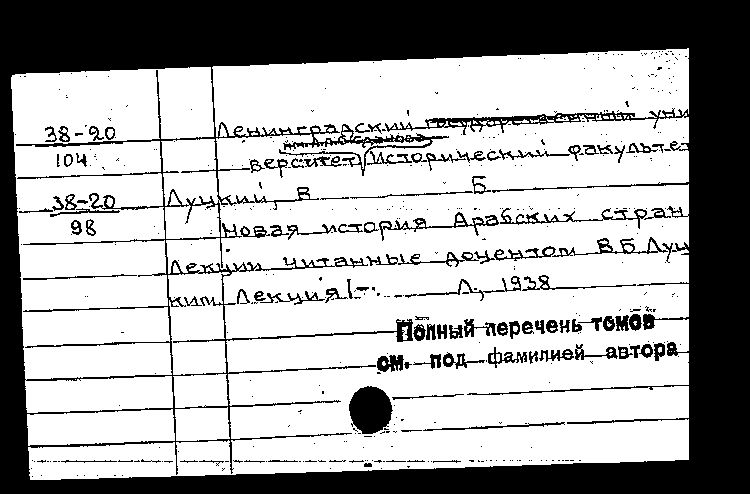 38-20
104
Ленинградский государственный уни
верситет Исторический факультет
38-20
98
Луцкий, В Б.
Новая история Арабских стран
Лекции читанные доцентом В.Б Луц
ким Лекция I-. Л., 1938
Полный перечень томов
см. под фамилией автора